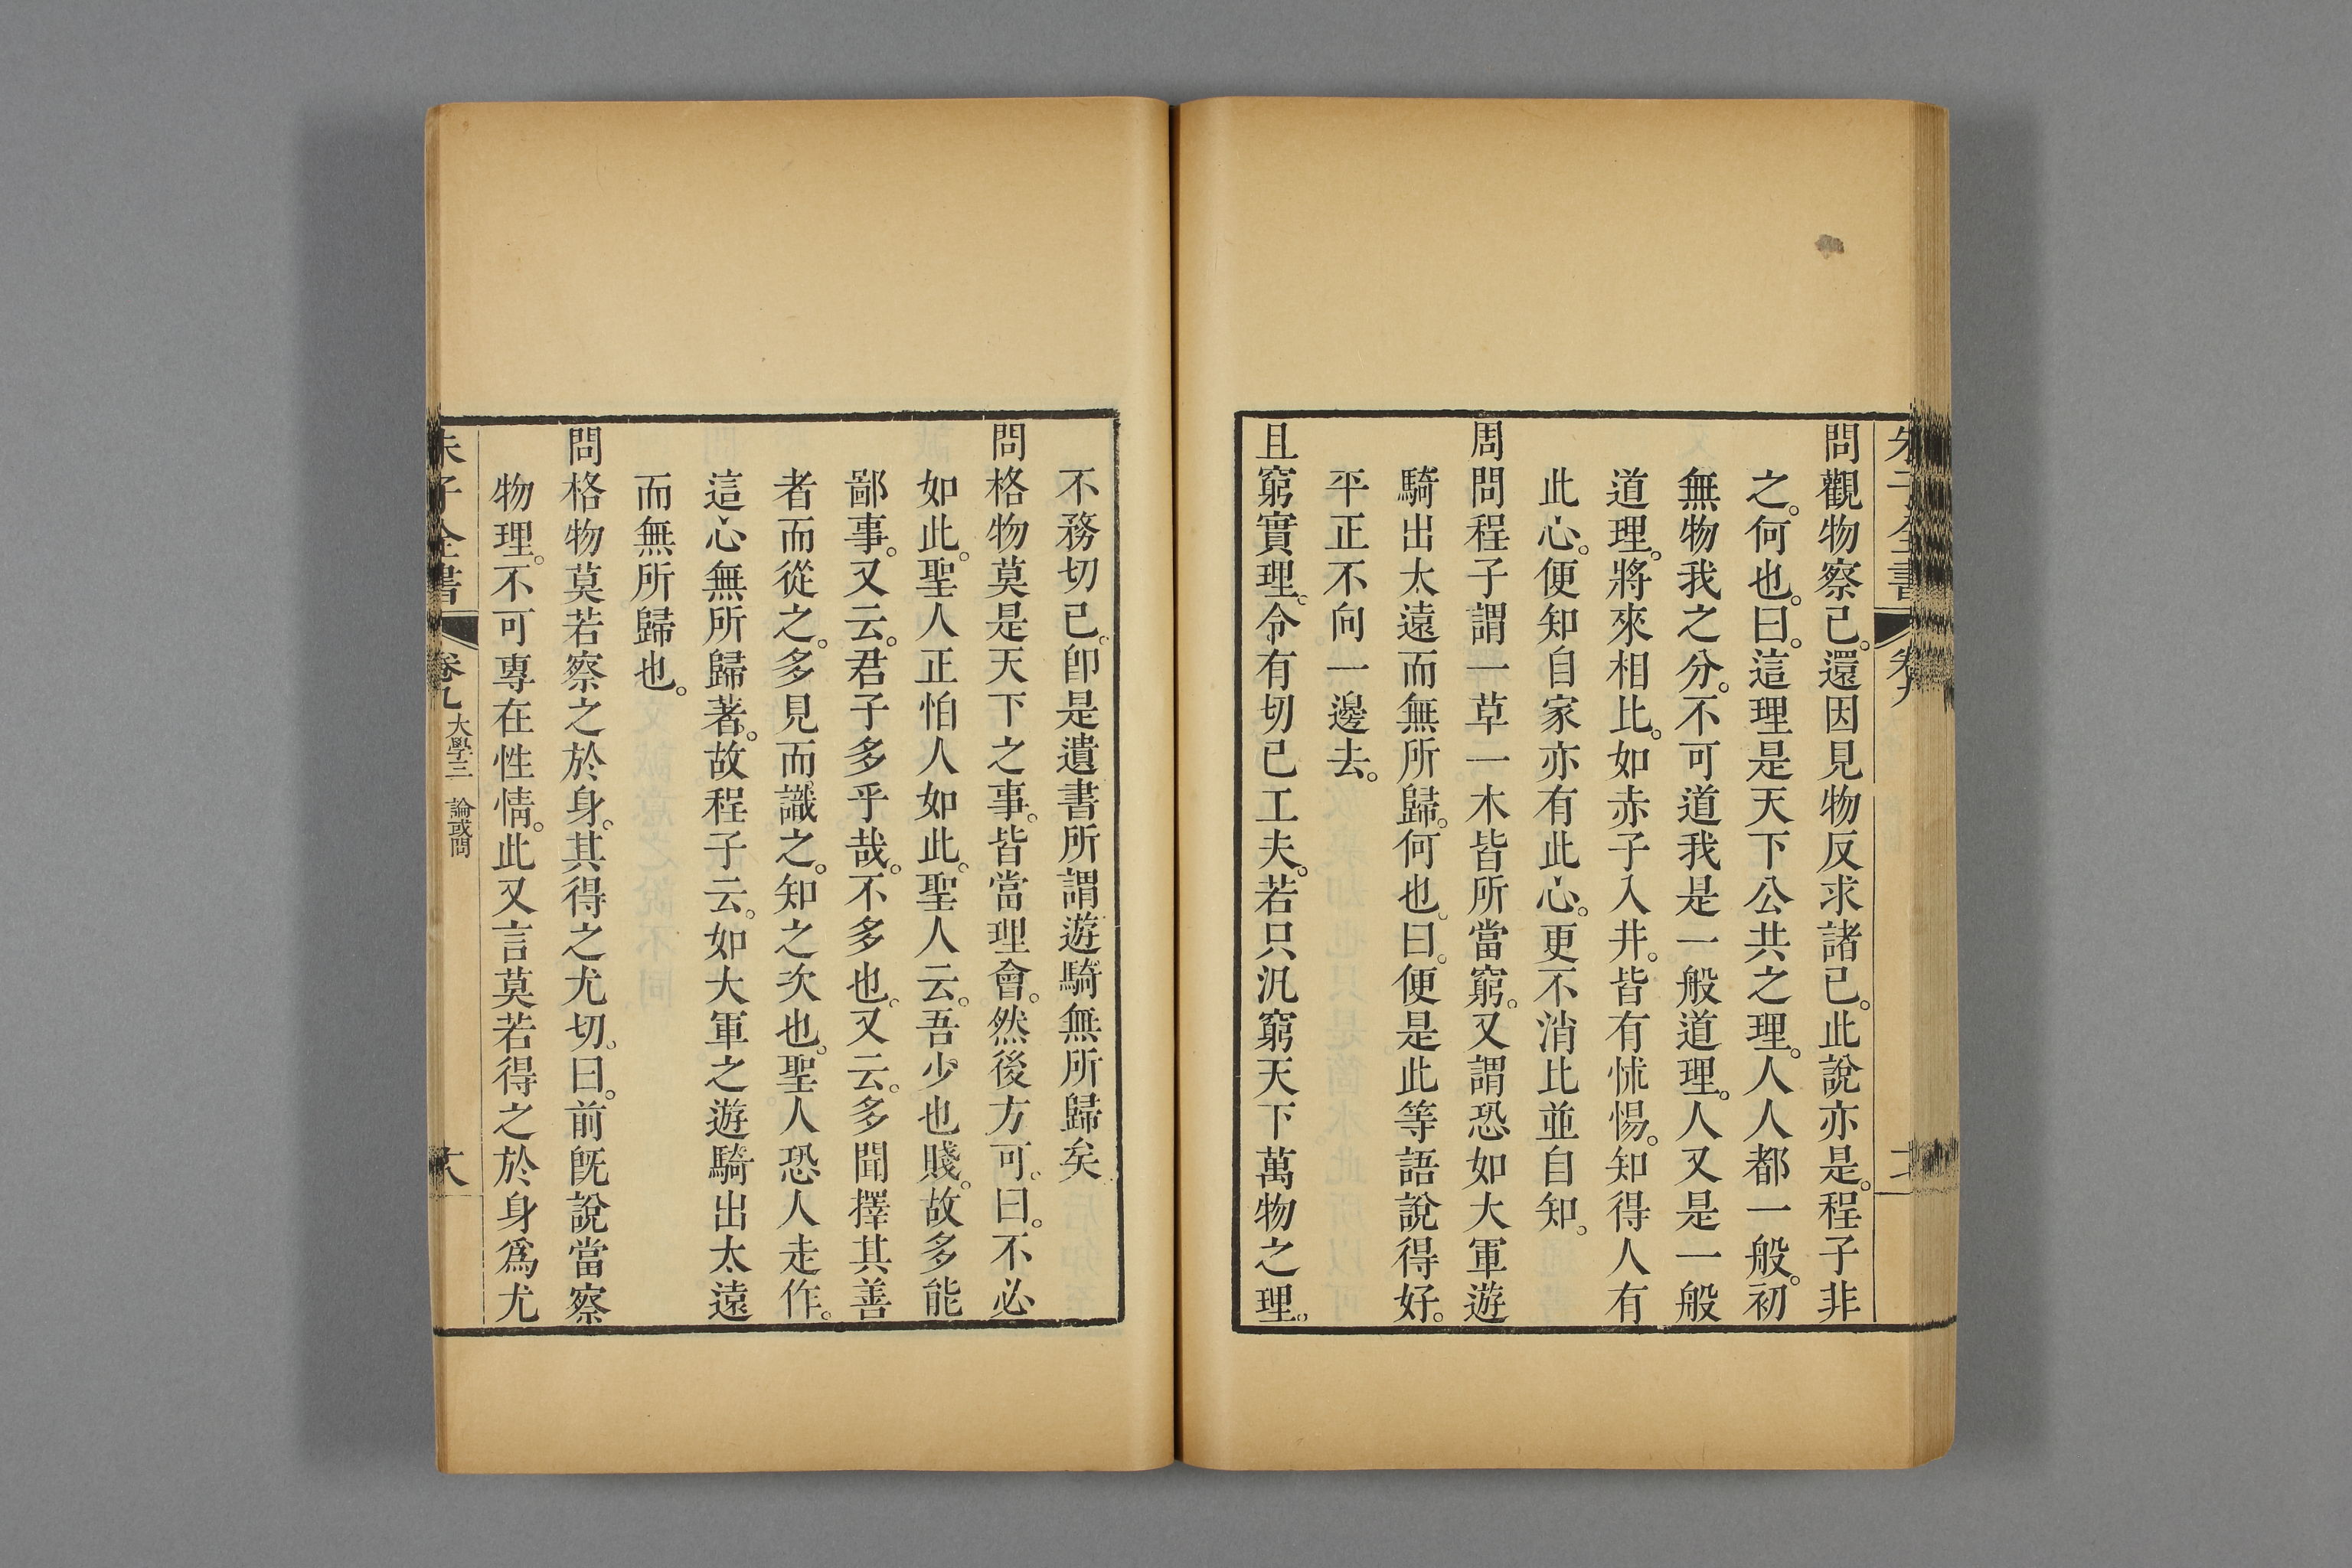 問觀物察己。還因見物反求諸己。此說亦是。程子非
之。何也。曰。這理是天下公共之理。人人都一般。初
無物我之分。不可道我是一般道理。人又是一般
道理。將來相比。如赤子入井。皆有怵惕。知得人有
此心。便知自家亦有此心。更不消比並自知。
周問程子謂一草一木皆所當窮。又謂恐如大軍遊
騎出太遠而無所歸。何也。曰。便是此等語說得好。
平正不向一邊去。
且窮實理。令有切己工夫。若只汎窮天下萬物之理。
不務切己。卽是遺書所謂遊騎無所歸矣
問格物莫是天下之事。皆當理會。然後方可。曰。不必
如此。聖人正怕人如此。聖人云。吾少也賤。故多能
鄙事。又云。君子多乎哉。不多也。又云。多聞擇其善
者而從之。多見而識之。知之次也。聖人恐人走作。
這心無所歸著。故程子云。如大軍之遊騎出太遠
而無所歸也。
問格物莫若察之於身。其得之尤切。曰。前旣說當察
物理。不可專在性情。此又言莫若得之於身爲尤
朱子全書
卷九
大學三 論或問